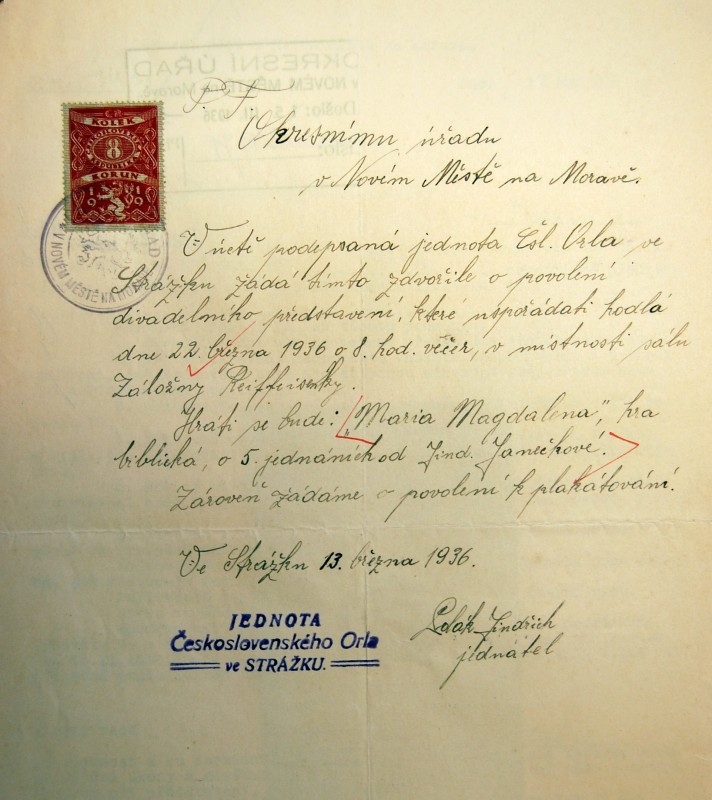 P. T.
Okresnímu úřadu
v Novém Městě na Moravě.
KOLEK
8
KORUN
1919
V NOVÉM MĚSTĚ NA MOR
V úctě podepsaná jednota Čsl. Orla ve
Strážku žádá tímto zdvořile o povolení
divadelního představení, které uspořádati hodlá
dne 22. března 1936 o 8. hod. večer, v místnosti sálu
Záložny Reiffeisenky.
Hráti se bude: „Maria Magdalena", hra
biblická, o 5. jednáních od Jind. Janečkové.
Zároveň žádáme o povolení k plakátování.
Ve Strážku 13. března 1936.
JEDNOTA
Československého Orla
ve STRÁŽKU.
Jindřich
jednatel
OKRESNÍ ÚŘAD
v NOVÉM MĚSTĚ na Moravě
Došlo: